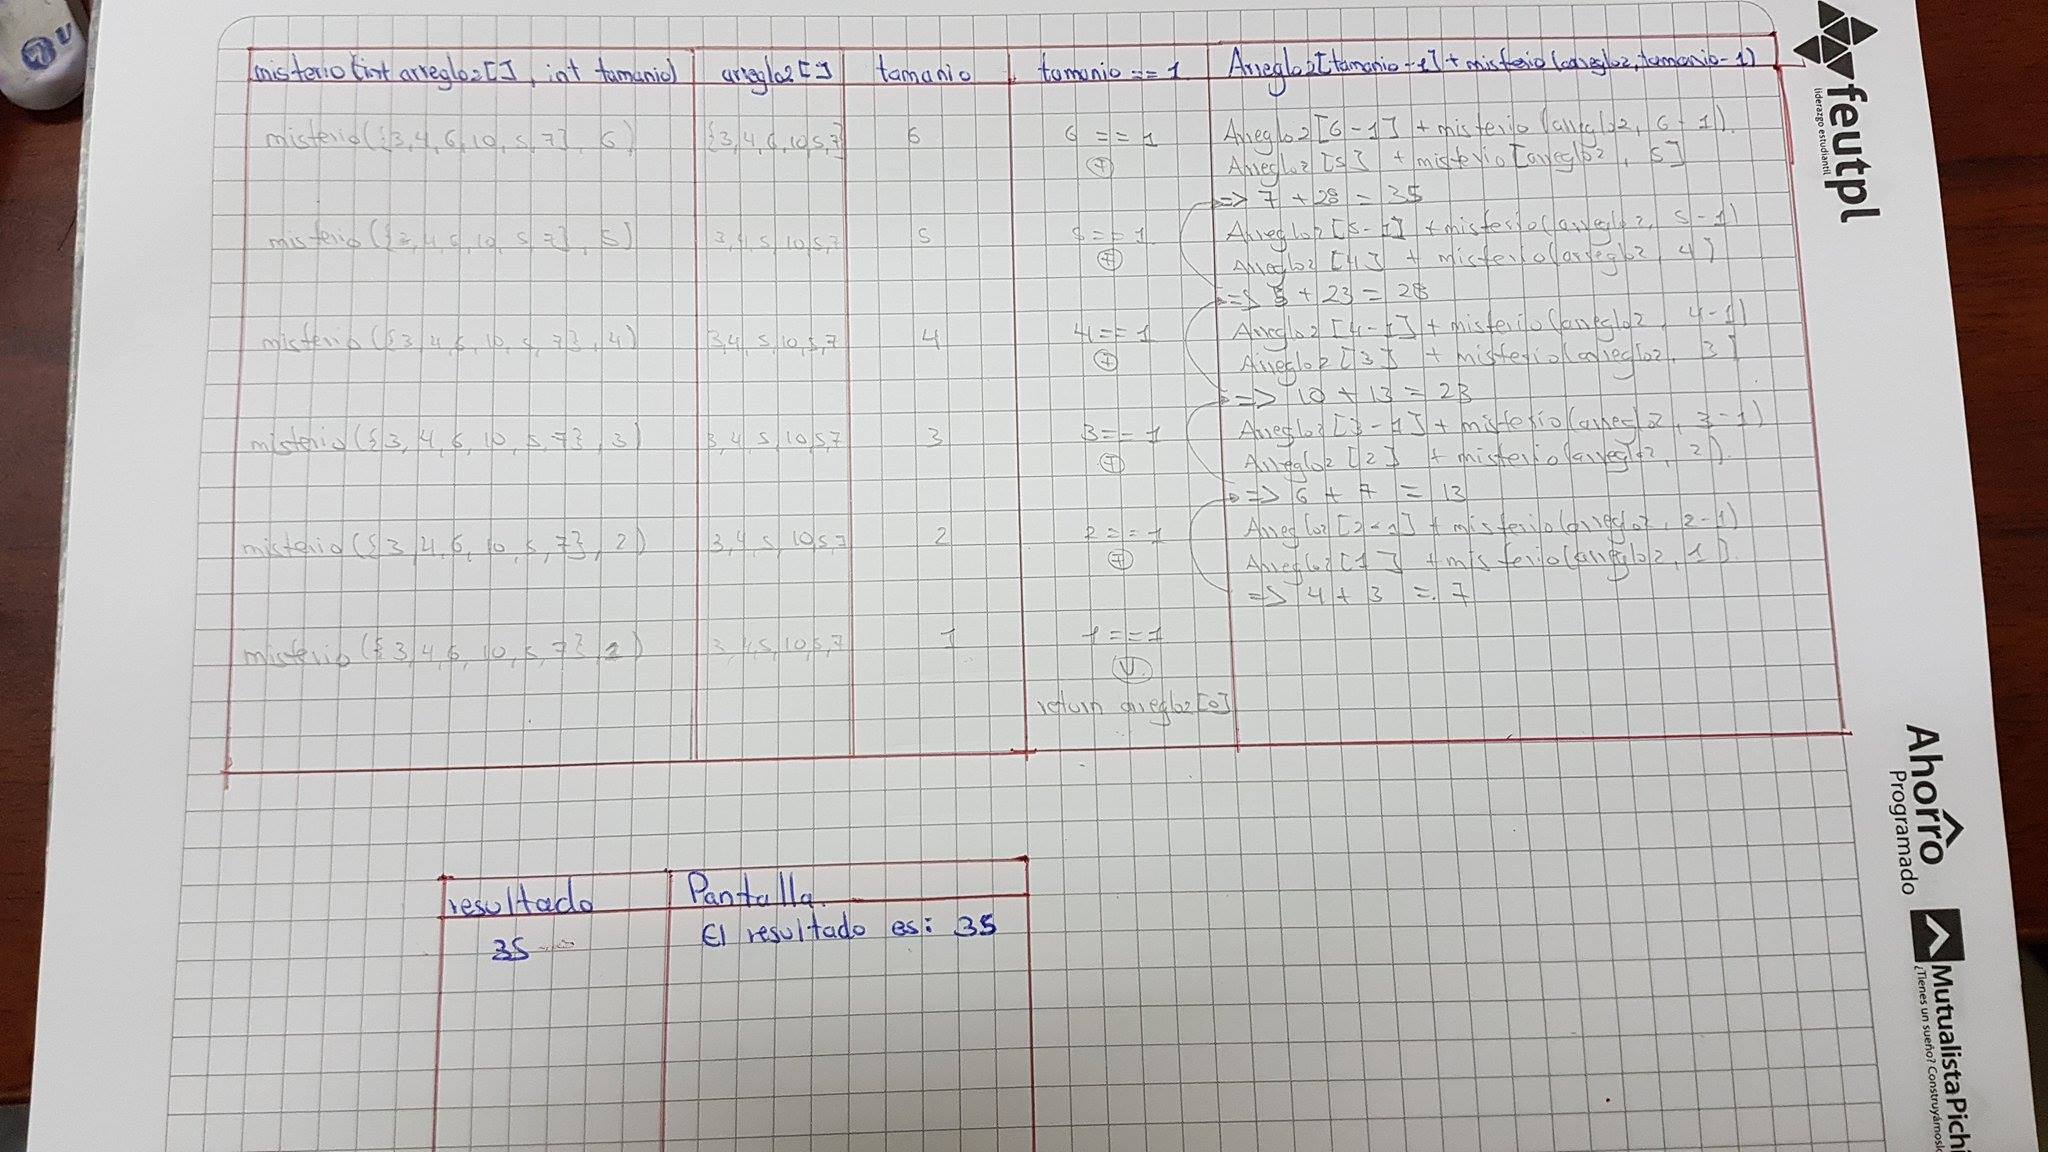 misterio (int arreglo2[], int tamanio) arreglo2[] tamanio tamanio == 1 Arreglo2[tamanio-1] + misterio(arreglo2, tamanio-1)
misterio({3,4,6,10,5,7}, 6) {3,4,6,10,5,7} 6 6 == 1 Arreglo2[6-1] + misterio(arreglo2, 6-1).
F Arreglo2[5] + misterio[arreglo2, 5]
=> 7 + 28 = 35
misterio({3,4,6,10,5,7}, 5) 3,4,5,10,5,7 5 5 == 1 Arreglo2[5-1] + misterio(arreglo2, 5-1)
F Arreglo2[4] + misterio(arreglo2, 4]
=> 5 + 23 = 28
misterio({3,4,6,10,5,7}, 4) 3,4,5,10,5,7 4 4 == 1 Arreglo2[4-1] + misterio(arreglo2, 4-1)
F Arreglo2[3] + misterio(arreglo2, 3]
=> 10 + 13 = 23
misterio({3,4,6,10,5,7}, 3) 3,4,5,10,5,7 3 3 == 1 Arreglo2[3-1] + misterio(arregl2, 3-1)
F Arreglo2[2] + misterio(arregl2, 2).
=> 6 + 7 = 13
misterio({3,4,6,10,5,7}, 2) 3,4,5,10,5,7 2 2 == 1 Arreglo2[2-1] + misterio(arreglo2, 2-1)
F Arreglo2[1] + misterio(arreglo2, 1).
=> 4 + 3 = 7
misterio({3,4,6,10,5,7} ) 3,4,5,10,5,7 1 1 == 1
V
return arreglo2[0]
resultado Pantalla.
35 El resultado es: 35
feutpl
liderazgo estudiantil
Ahorro
Programado
MutualistaPichi
¿Tienes un sueño?